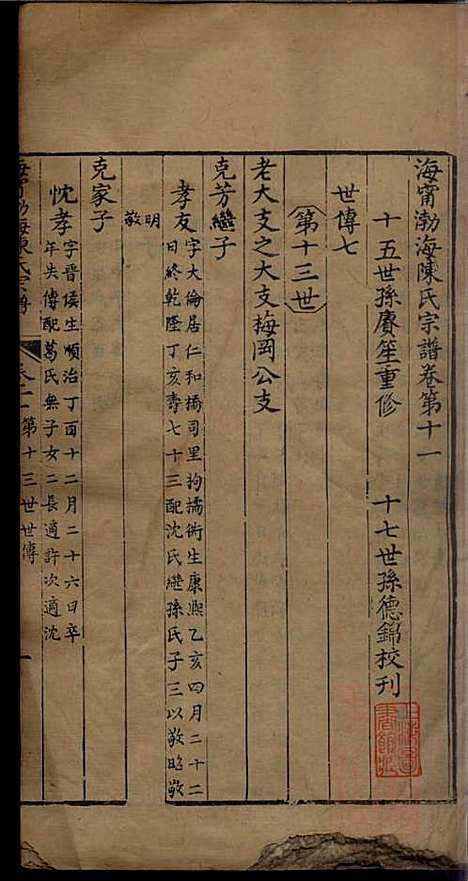 海甯渤海陳氏宗譜卷第十一
十五世孫賡笙重修　十七世孫德錦校刊
世傳七
第十三世
老大支之大支梅岡公支
克芳繼子
孝友
字大倫居仁和橋司里拘橘衖生康熙乙亥四月二十二
日終乾隆丁亥壽七十三配沈氏繼孫氏子三以敬昭敬
明
敬
克家子
忱孝
字晉侯生順治丁酉十二月二十六日卒
年失傳配葛氏無子女二長適許次適沈
海甯渤海陳氏宗譜
卷十一
第十三世世傳
一
上海圖書館藏